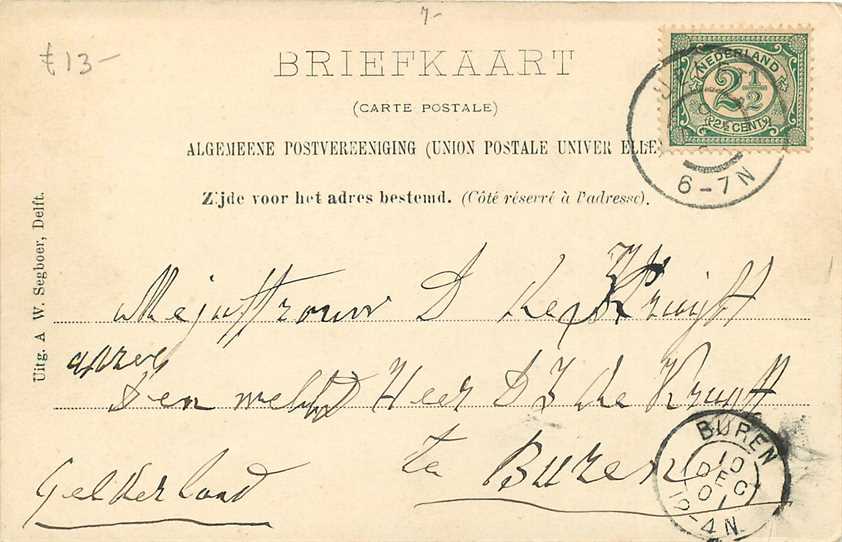 7-
£ 13-
BRIEFKAART
(CARTE POSTALE)
ALGEMEENE POSTVEREENIGING (UNION POSTALE UNIVER ELLE
Zijde voor het adres bestemd. (Côté réservé à l'adresse).
NEDERLAND
2½
2½ CENT
6-7N
Uitg. A W. Segboer, Delft.
Mejuffrouw D de Kruijff
Den Heer D J de Kruijff
te Buren
Gelderland
BUREN
10
DEC
01
12-4N